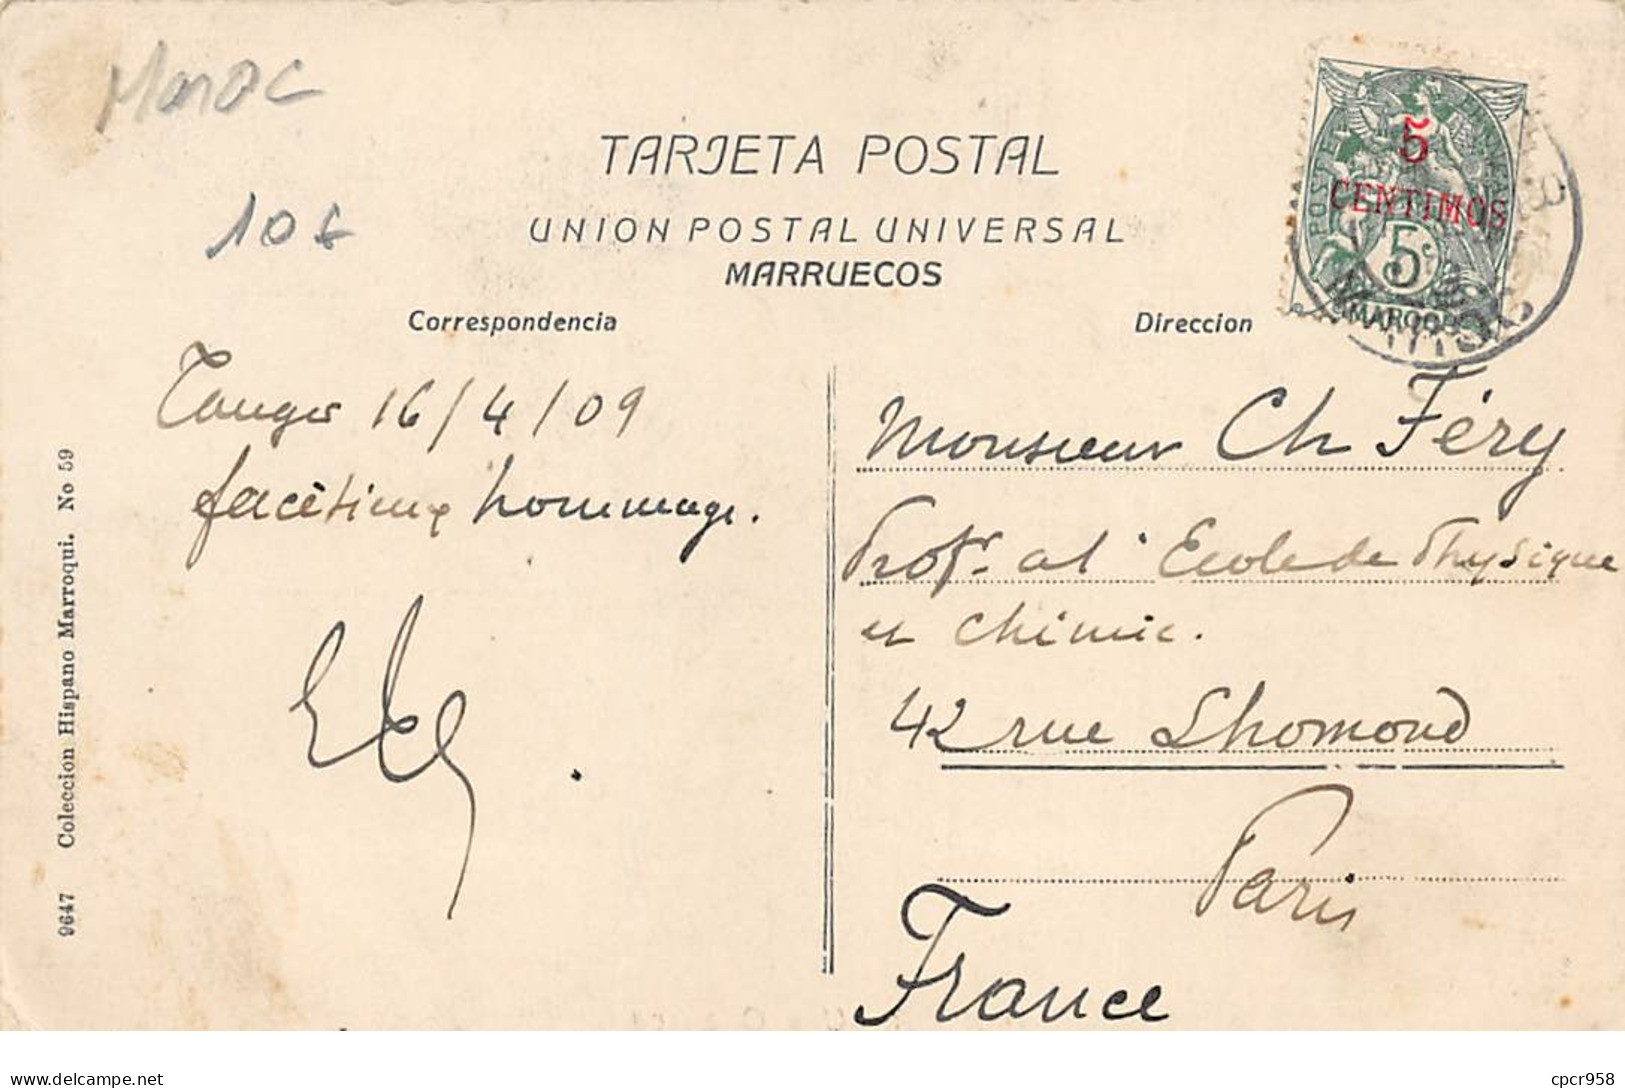 Maroc
TARJETA POSTAL
10 €
UNION POSTAL UNIVERSAL
MARRUECOS
Correspondencia
Direccion
POSTES
5
CENTIMOS
5c
MAROC
Tanger 16/4/09
facétieux hommage.
Monsieur Ch Féry
Profr. à l'Ecole de Physique
et Chimie.
42 rue Lhomond
Paris
France
9647 Coleccion Hispano Marroqui. No 59
delcampe.net
cpcr958